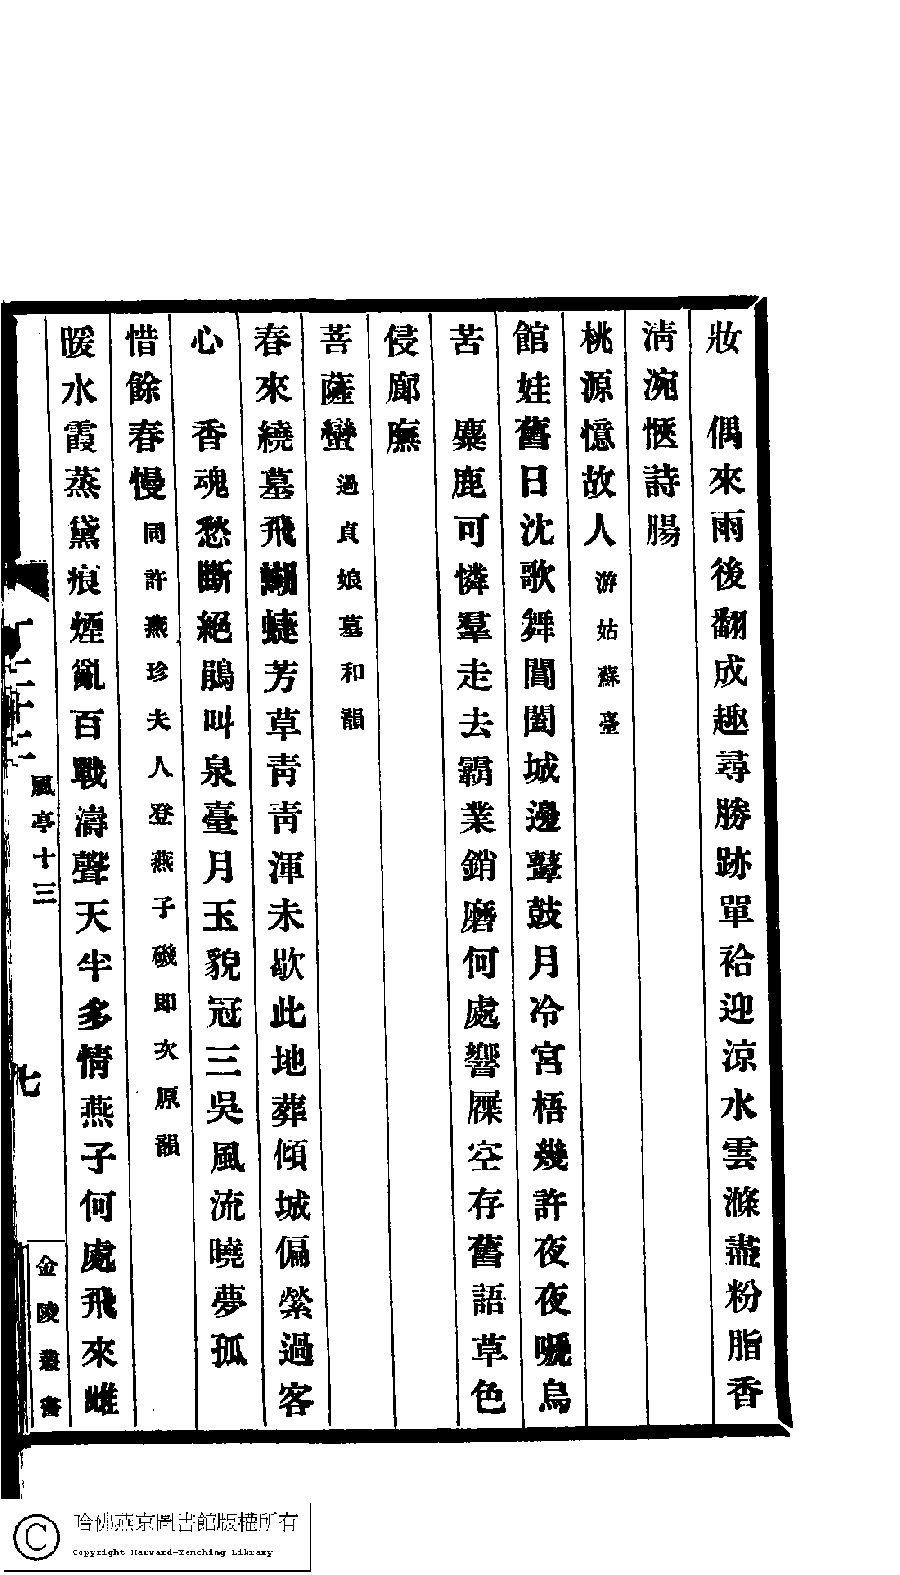 妝　偶來雨後翻成趣尋勝跡單袷迎涼水雲滌盡粉脂香
淸涴愜詩腸
桃源憶故人游姑蘇臺
館娃舊日沈歌舞閶闔城邊鼙鼓月冷宮梧幾許夜夜嗁烏
苦　麋鹿可憐羣走去霸業銷磨何處響屧空存舊語草色
侵廊廡
菩薩蠻過貞娘墓和韻
春來繞墓飛蝴蜨芳草靑靑渾未歇此地葬傾城偏縈過客
心　香魂愁斷絕鵑叫泉臺月玉貌冠三吳風流曉夢孤
惜餘春慢同許燕珍夫人登燕子磯即次原韻
暖水霞蒸黛痕煙亂百戰濤聲天半多情燕子何處飛來雌
風亭十三
七
金陵叢書
哈佛燕京圖書館版權所有
Copyright Harvard-Yenching Library